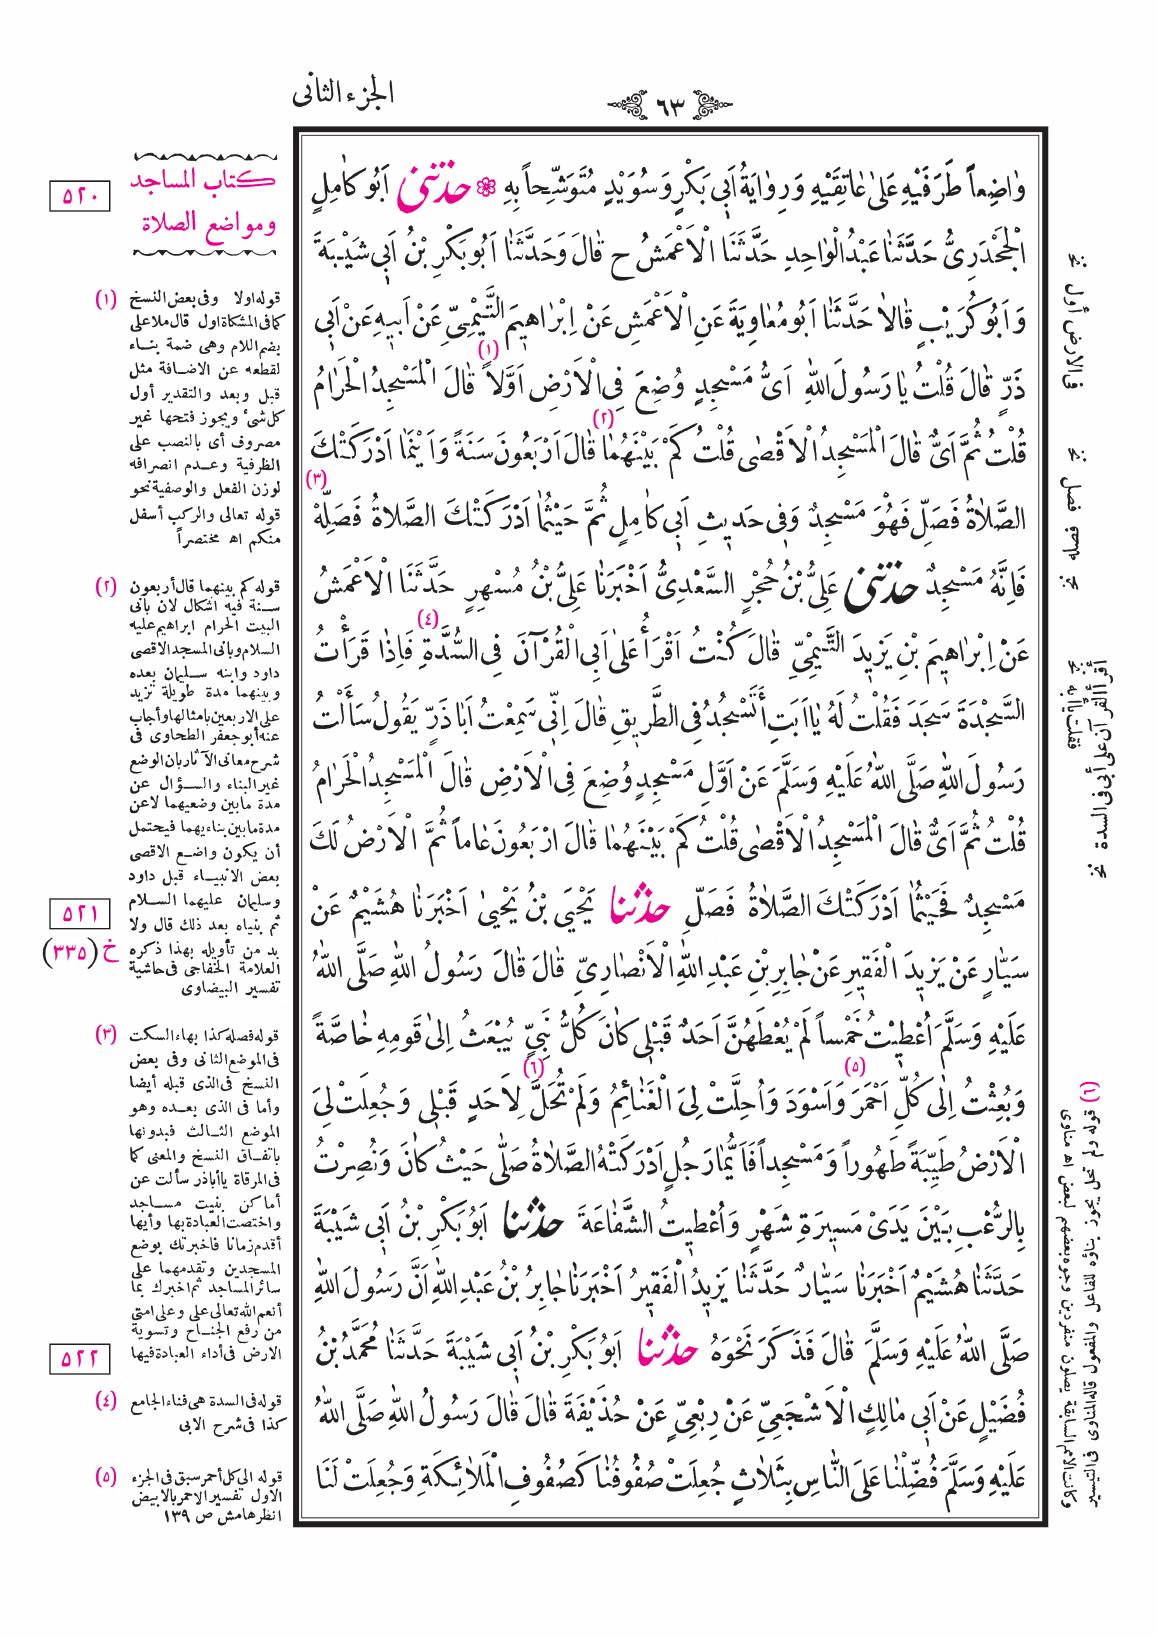 الجزء الثانى
٦٣
وَاضِعاً طَرَفَيْهِ عَلىٰ عَاتِقَيْهِ وَرِوَايَةُ اَبِى بَكْرٍ وَسُوَيْدٍ مُتَوَشِّحاً بِهِ ❁ حَدَّثَنِى اَبُو كَامِلٍ
الْجَحْدَرِىُّ حَدَّثَنَا عَبْدُ الْوَاحِدِ حَدَّثَنَا الْاَعْمَشُ ح قَالَ وَحَدَّثَنَا اَبُو بَكْرِ بْنُ اَبِى شَيْبَةَ
وَاَبُو كُرَيْبٍ قَالَا حَدَّثَنَا اَبُو مُعَاوِيَةَ عَنِ الْاَعْمَشِ عَنْ اِبْرَاهِيمَ التَّيْمِىِّ عَنْ اَبِيهِ عَنْ اَبِى
ذَرٍّ قَالَ قُلْتُ يَا رَسُولَ اللهِ اَىُّ مَسْجِدٍ وُضِعَ فِى الْاَرْضِ اَوَّلاً (١) قَالَ الْمَسْجِدُ الْحَرَامُ
قُلْتُ ثُمَّ اَىٌّ قَالَ الْمَسْجِدُ الْاَقْصٰى قُلْتُ كَمْ بَيْنَهُمَا (٢) قَالَ اَرْبَعُونَ سَنَةً وَاَيْنَمَا اَدْرَكَتْكَ
الصَّلَاةُ فَصَلِّ فَهُوَ مَسْجِدٌ وَفِى حَدِيثِ اَبِى كَامِلٍ ثُمَّ حَيْثُمَا اَدْرَكَتْكَ الصَّلَاةُ فَصَلِّهْ (٣)
فَاِنَّهُ مَسْجِدٌ حَدَّثَنِى عَلِىُّ بْنُ حُجْرٍ السَّعْدِىُّ اَخْبَرَنَا عَلِىُّ بْنُ مُسْهِرٍ حَدَّثَنَا الْاَعْمَشُ
عَنْ اِبْرَاهِيمَ بْنِ يَزِيدَ التَّيْمِىِّ قَالَ كُنْتُ اَقْرَأُ عَلىٰ اَبِى الْقُرْآنَ فِى السُّدَّةِ (٤) فَاِذَا قَرَأْتُ
السَّجْدَةَ سَجَدَ فَقُلْتُ لَهُ يَا اَبَتِ أَتَسْجُدُ فِى الطَّرِيقِ قَالَ اِنِّى سَمِعْتُ اَبَا ذَرٍّ يَقُولُ سَأَلْتُ
رَسُولَ اللهِ صَلَّى اللهُ عَلَيْهِ وَسَلَّمَ عَنْ اَوَّلِ مَسْجِدٍ وُضِعَ فِى الْاَرْضِ قَالَ الْمَسْجِدُ الْحَرَامُ
قُلْتُ ثُمَّ اَىٌّ قَالَ الْمَسْجِدُ الْاَقْصٰى قُلْتُ كَمْ بَيْنَهُمَا قَالَ اَرْبَعُونَ عَاماً ثُمَّ الْاَرْضُ لَكَ
مَسْجِدٌ فَحَيْثُمَا اَدْرَكَتْكَ الصَّلَاةُ فَصَلِّ حَدَّثَنَا يَحْيَى بْنُ يَحْيىٰ اَخْبَرَنَا هُشَيْمٌ عَنْ
سَيَّارٍ عَنْ يَزِيدَ الْفَقِيرِ عَنْ جَابِرِ بْنِ عَبْدِ اللهِ الْاَنْصَارِىِّ قَالَ قَالَ رَسُولُ اللهِ صَلَّى اللهُ
عَلَيْهِ وَسَلَّمَ اُعْطِيتُ خَمْساً لَمْ يُعْطَهُنَّ اَحَدٌ قَبْلِى كَانَ كُلُّ نَبِىٍّ يُبْعَثُ اِلىٰ قَوْمِهِ خَاصَّةً
وَبُعِثْتُ اِلىٰ كُلِّ اَحْمَرَ (٥) وَاَسْوَدَ وَاُحِلَّتْ لِىَ الْغَنَائِمُ وَلَمْ تُحَلَّ (٦) لِاَحَدٍ قَبْلِى وَجُعِلَتْ لِىَ
الْاَرْضُ طَيِّبَةً طَهُوراً وَمَسْجِداً فَاَيُّمَا رَجُلٍ اَدْرَكَتْهُ الصَّلَاةُ صَلَّى حَيْثُ كَانَ وَنُصِرْتُ
بِالرُّعْبِ بَيْنَ يَدَىْ مَسِيرَةِ شَهْرٍ وَاُعْطِيتُ الشَّفَاعَةَ حَدَّثَنَا اَبُو بَكْرِ بْنُ اَبِى شَيْبَةَ
حَدَّثَنَا هُشَيْمٌ اَخْبَرَنَا سَيَّارٌ حَدَّثَنَا يَزِيدُ الْفَقِيرُ اَخْبَرَنَا جَابِرُ بْنُ عَبْدِ اللهِ اَنَّ رَسُولَ اللهِ
صَلَّى اللهُ عَلَيْهِ وَسَلَّمَ قَالَ فَذَكَرَ نَحْوَهُ حَدَّثَنَا اَبُو بَكْرِ بْنُ اَبِى شَيْبَةَ حَدَّثَنَا مُحَمَّدُ بْنُ
فُضَيْلٍ عَنْ اَبِى مَالِكٍ الْاَشْجَعِىِّ عَنْ رِبْعِىٍّ عَنْ حُذَيْفَةَ قَالَ قَالَ رَسُولُ اللهِ صَلَّى اللهُ
عَلَيْهِ وَسَلَّمَ فُضِّلْنَا عَلَى النَّاسِ بِثَلَاثٍ جُعِلَتْ صُفُوفُنَا كَصُفُوفِ الْمَلَائِكَةِ وَجُعِلَتْ لَنَا
كتاب المساجد
ومواضع الصلاة
٥٢٠
(١) قوله اولا وفى بعض النسخ
كما فى المشكاة اول قال ملا على
بضم اللام وهى ضمة بناء
لقطعه عن الاضافة مثل
قبل وبعد والتقدير أول
كل شئ ويجوز فتحها غير
مصروف أى بالنصب على
الظرفية وعدم انصرافه
لوزن الفعل والوصفية نحو
قوله تعالى والركب أسفل
منكم اھ مختصراً
(٢) قوله كم بينهما قال أربعون
سنة فيه اشكال لان بانى
البيت الحرام ابراهيم عليه
السلام وبانى المسجد الاقصى
داود وابنه سليمان بعده
وبينهما مدة طويلة تزيد
على الاربعين بامثالها وأجاب
عنه أبو جعفر الطحاوى فى
شرح معانى الآثار بان الوضع
غير البناء والسؤال عن
مدة مابين وضعيهما لا عن
مدة مابين بناءيهما فيحتمل
أن يكون واضع الاقصى
بعض الانبياء قبل داود
وسليمان عليهما السلام
ثم بنياه بعد ذلك قال ولا
بد من تأويله بهذا ذكره
العلامة الخفاجى فى حاشية
تفسير البيضاوى
٥٢١
خ (٣٣٥)
(٣) قوله فصله كذا بهاء السكت
فى الموضع الثانى وفى بعض
النسخ فى الذى قبله أيضا
وأما فى الذى بعده وهو
الموضع الثالث فبدونها
باتفاق النسخ والمعنى كما
فى المرقاة يا أباذر سألت عن
أماكن بنيت مساجد
واختصت العبادة بها وأيها
أقدم زمانا فاخبرتك بوضع
المسجدين وتقدمهما على
سائر المساجد ثم اخبرك بما
أنعم الله تعالى على وعلى امتى
من رفع الجناح وتسوية
الارض فى أداء العبادة فيها
٥٢٢
(٤) قوله فى السدة هى فناء الجامع
كذا فى شرح الابى
(٥) قوله الى كل أحمر سبق فى الجزء
الاول تفسير الاحمر بالابيض
انظر هامش ص ١٣٩
فى الارض أول نخ
فصله فصل نخ
أقرأ القرآن على أبى فى السدة نخ
فقلت يا أبه نخ
(٦) قوله ولم تحل يجوز بناؤه للفاعل والمفعول قاله المناوى فى التيسير
وكانت الامم السابقة يصلون منفردين وجوه بعضهم لبعض اھ مناوى